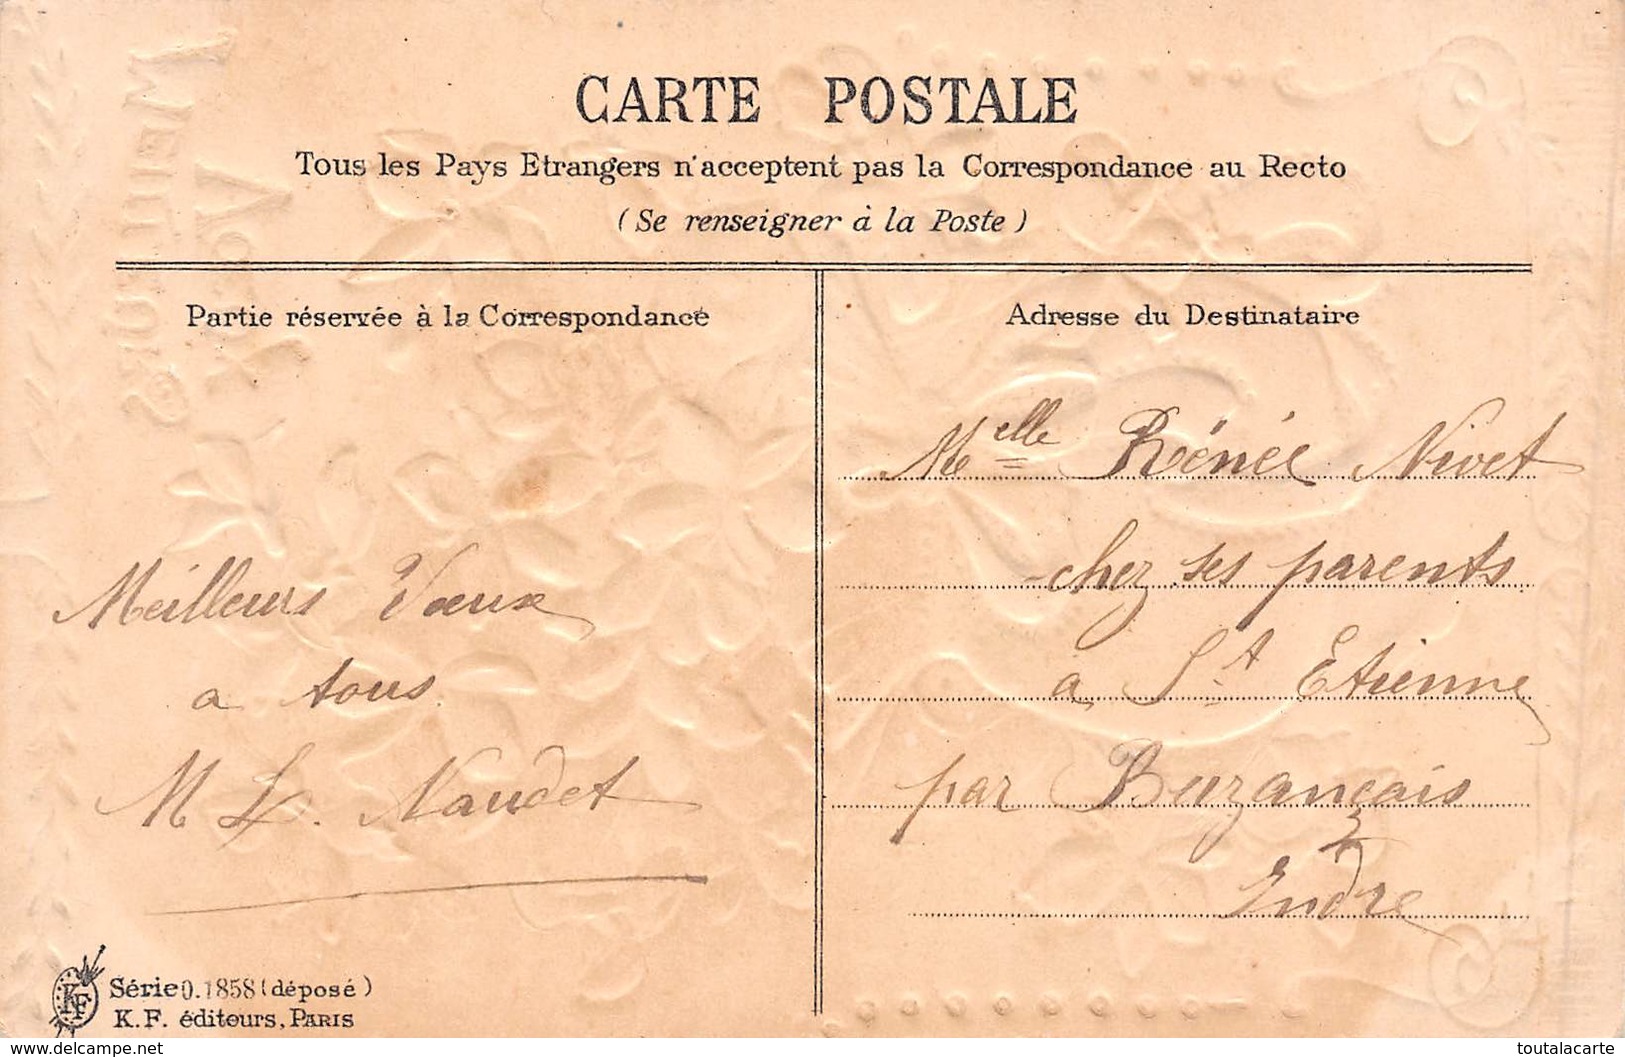 CARTE POSTALE
Tous les Pays Etrangers n'acceptent pas la Correspondance au Recto
(Se renseigner à la Poste)
Partie réservée à la Correspondance
Meilleurs Vœux
a tous
M L. Naudet
Série O.1858 (déposé)
K.F. éditeurs, PARIS
KF
Adresse du Destinataire
Melle Rénée Nivet
chez ses parents
a St Etienne
par Buzançais
Indre
www.delcampe.net
toutalacarte